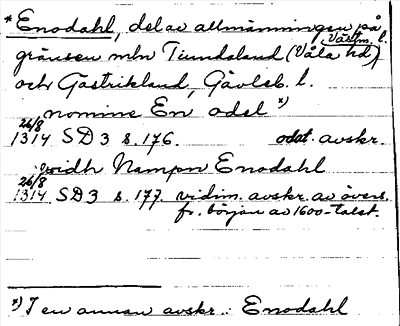 * Enodahl, del av allmänningen på
gränsen mln Tiundaland (Våla hd,
Västm. l.)
och Gästrikland, Gävleb. l.
nomine En odel *)
26/8
1314 SD 3 s. 176. odat. avskr.
widh Nampn Enodahl
26/8
1314 SD 3 s. 177. vidim. avskr. av övers.
fr. början av 1600-talet.
*) I en annan avskr.: Enodahl